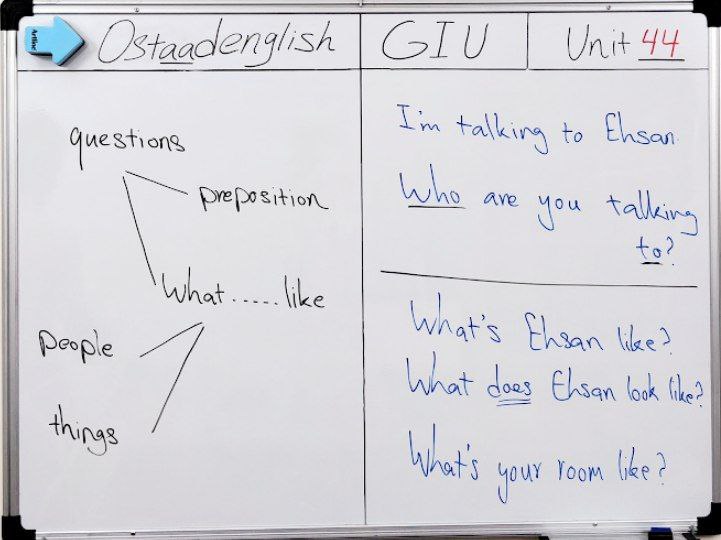 Ostaadenglish
GIU
Unit 44
questions
preposition
What.....like
people
things
I'm talking to Ehsan.
Who are you talking
to?
What's Ehsan like?
What does Ehsan look like?
What's your room like?